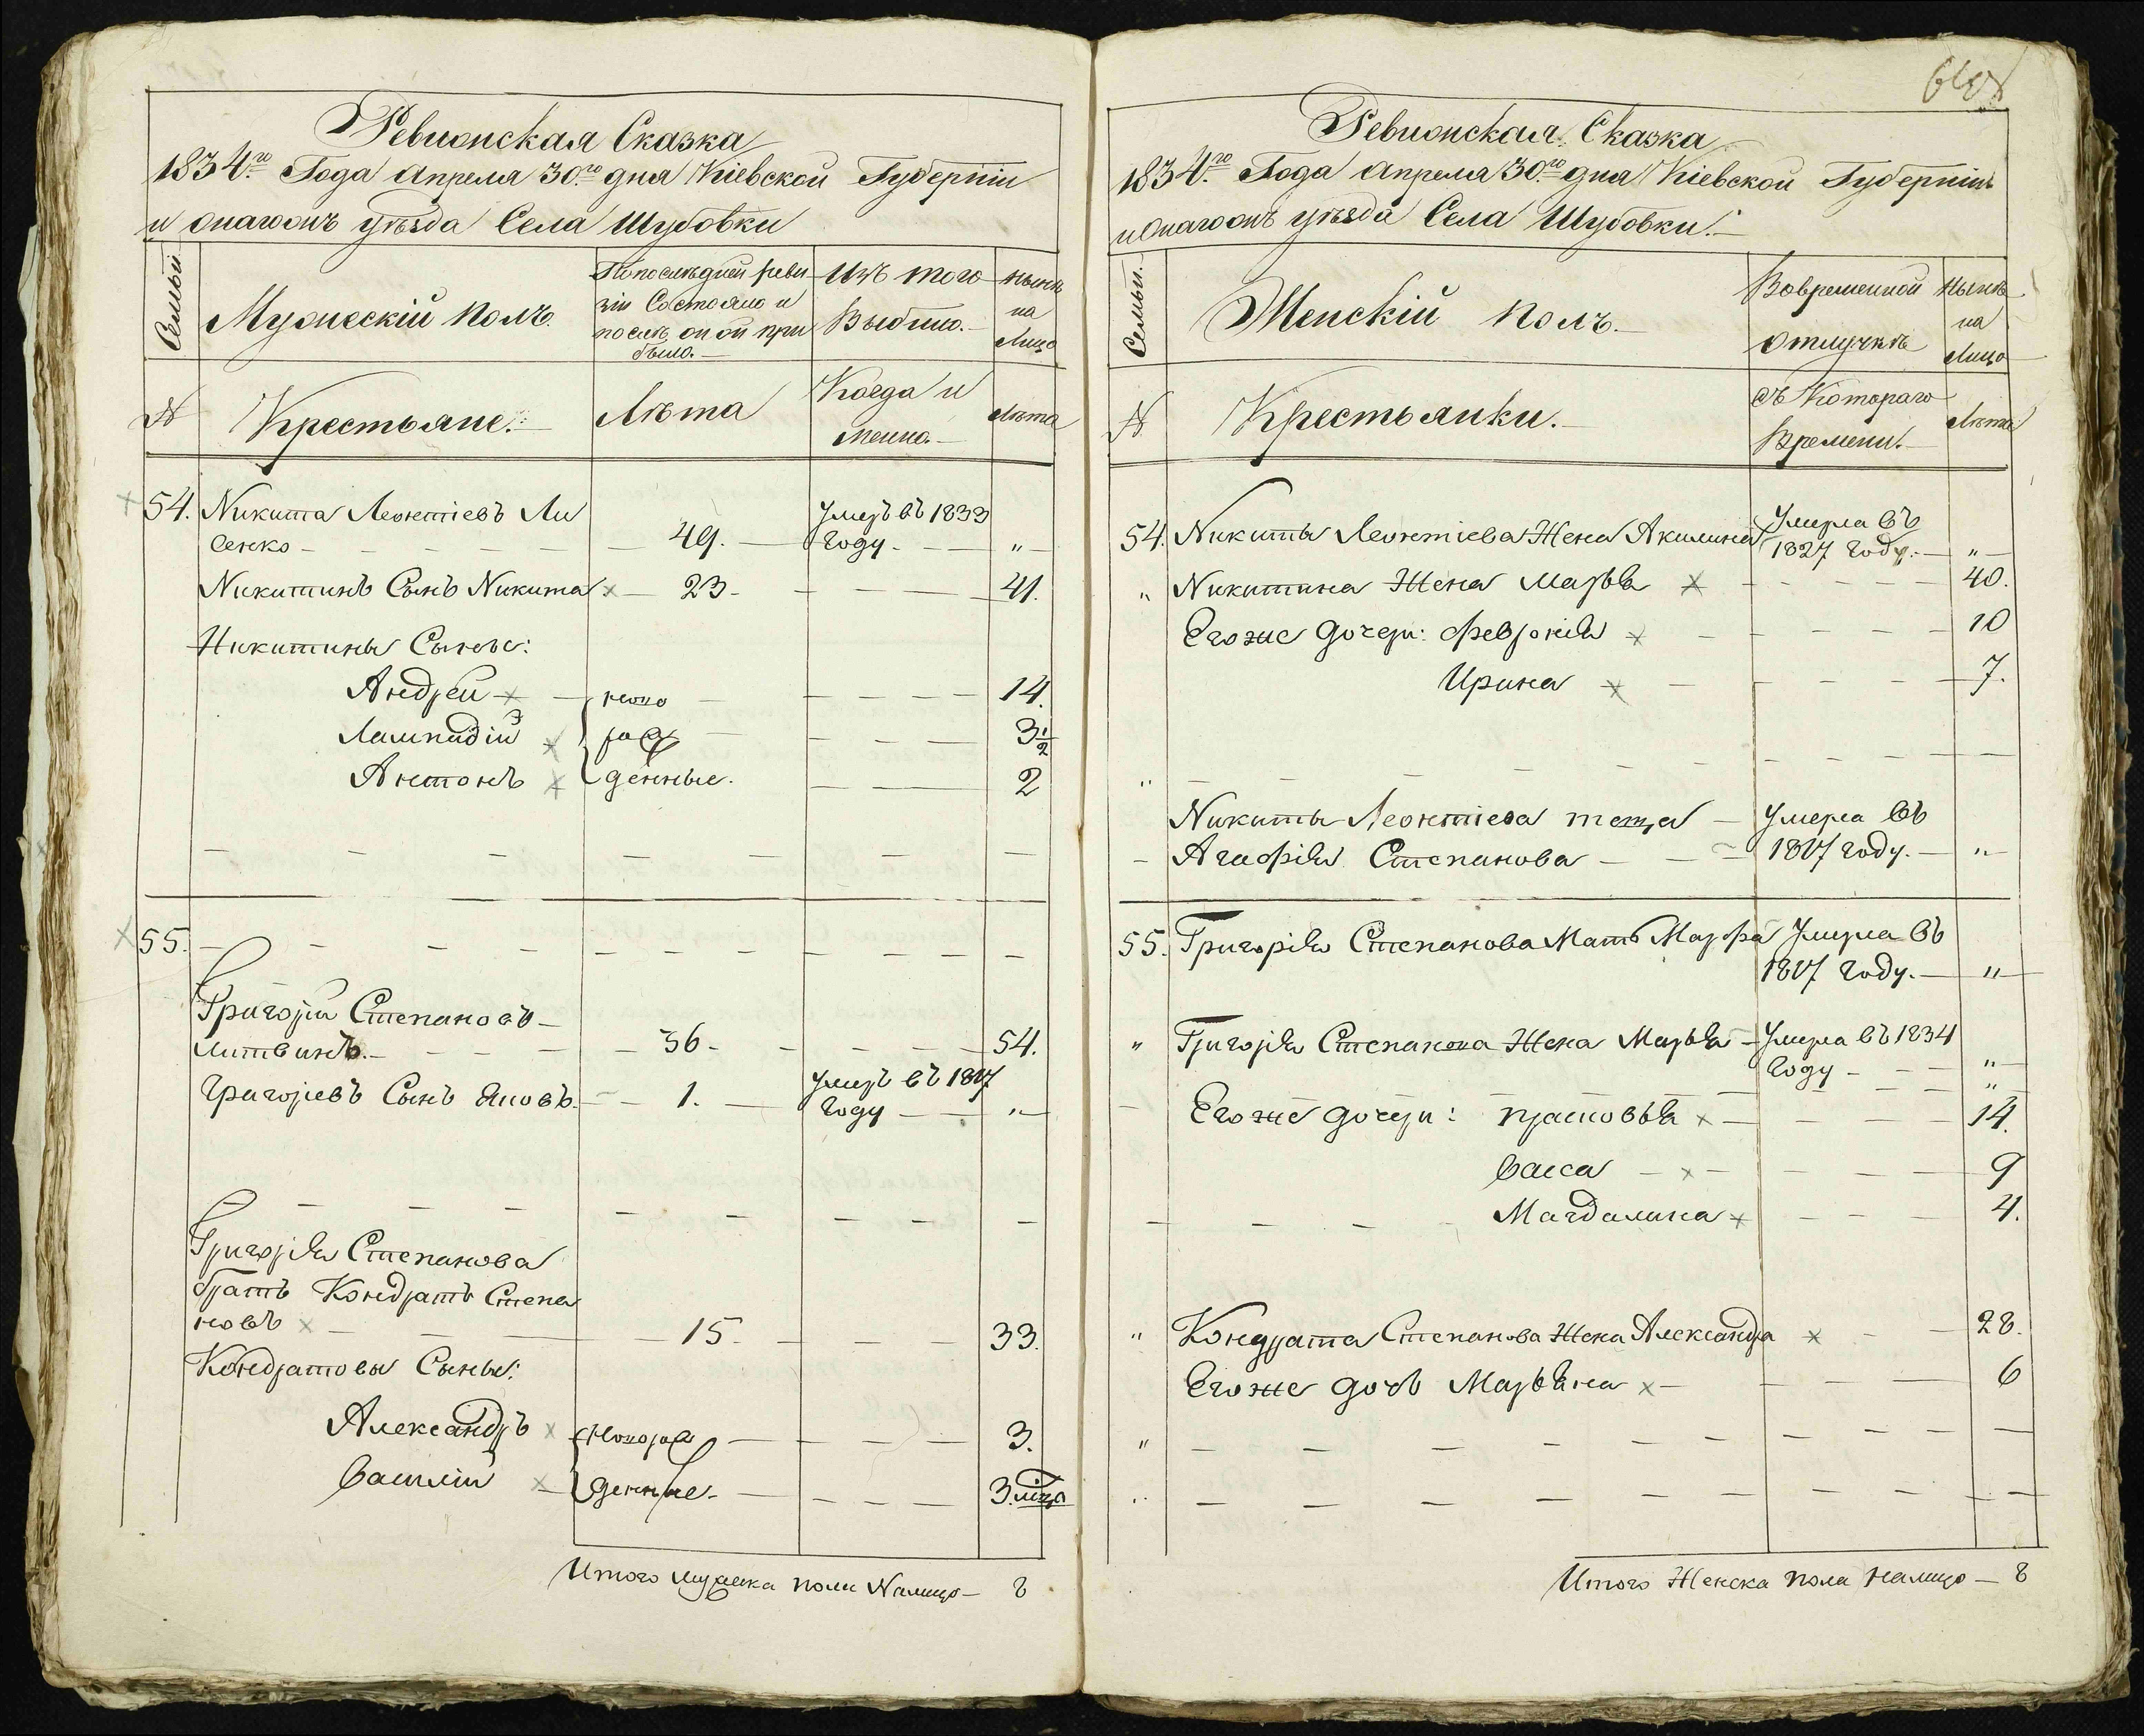 Ревизская Сказка
1834го Года Апреля 30го дня Кіевской Губерніи
и онагожъ уѣзда Села Шубовки
Семьи
Мужескій полъ.
По послѣдней реви
зіи Состояло и
послѣ оной при
было.
Изъ того
Выбыло.
Нынѣ
на
Лицо
№
Крестьяне.
Лѣта
Когда и
менно.
Лѣта
54. Никита Леонтіевъ Ли
сенко — 49. — Умеръ въ 1833 году. — "
Никитинъ Сынъ Никита × — 23 — 41.
Никитины Сыны:
Андрей × — ново — 14.
Лампадій × ро — 3½
Антонъ × жденные. — 2
× 55.
Григорій Степановъ
Литвинъ. — 36 — 54.
Григоріевъ Сынъ Яковъ. — 1. — Умеръ въ 1817 году — "
Григорія Степанова
братъ Кондратъ Степа
новъ × — 15 — 33.
Кондратовы Сыны:
Александръ × новоро — 3.
Василій × жденные — 3. мѣца
Итого мужеска пола Налицо — 8
Ревизская Сказка
1834го Года Апреля 30го дня Кіевской Губерніи
и Онагожъ уѣзда Села Шубовки.
Семьи.
Женскій полъ.
Вовременной
отлучкѣ
Нынѣ
на
Лицо
№
Крестьянки.
Съ Котораго
Времени.
Лѣта
54. Никиты Леонтіева Жена Акилина Умерла въ 1827 году. — "
" Никитина Жена Марья × — 40.
Егоже дочери: Февронія × — 10
Ирина × — 7.
Никиты Леонтіева теща — Умерла въ
Агафія Степанова — 1817 году. — "
55. Григорія Степанова Мать Марфа Умерла въ
1817 году. — "
" Григорія Степанова Жена Марья — Умерла въ 1834
году — "
Егоже дочери: Прасковья × — 14.
Васса — × — 9
Магдалина × — 4.
" Кондрата Степанова Жена Александра × — 28.
Егоже дочь Марьяна × — 6
Итого Женска пола налицо — 8